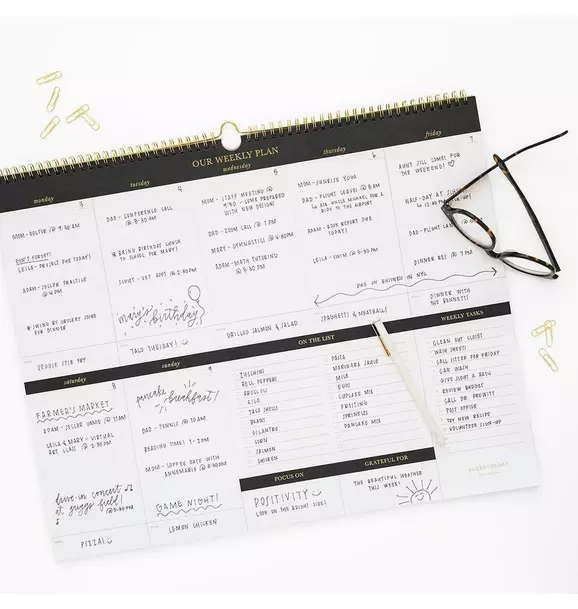 OUR WEEKLY PLAN
monday
tuesday
wednesday
thursday
friday
3
4
5
6
7
MOM - DOCTOR @ 9:30 AM
DON'T FORGET!
LEILA - PROJECT DUE TODAY!
ADAM - SOCCER PRACTICE
@ 4 PM
* SWING BY GROCERY STORE
FOR DINNER
VEGGIE STIR FRY
DAD - CONFERENCE CALL
@ 8:30 AM
* BRING BIRTHDAY LUNCH
TO SCHOOL FOR MARY!
SCOUT - VET APPT @ 2:30 PM
mary's
birthday!
TACO TUESDAY!
MOM - STAFF MEETING @
9:30 - COME PREPARED
WITH NEW DESIGN!
DAD - ZOOM CALL @ 1 PM
MARY - GYMNASTICS @ 4:30 PM
ADAM - MATH TUTORING
@ 5:30 PM
GRILLED SALMON & SALAD
MOM - SUNRISE YOGA
DAD - FLIGHT LEAVES @ 8 AM
RIDE TO THE AIRPORT
ADAM - BOOK REPORT DUE
TODAY!
LEILA - SWIM @ 5:30 PM
DAD ON BUSINESS IN NYC
SPAGHETTI & MEATBALLS!
AUNT JILL COMES FOR
THE WEEKEND!
HALF-DAY AT
@ 12:30 PM
DAD - FLIGHT LANDS @
DINNER RES @ 7 PM
DINNER WITH
THE BENNETTS
saturday
sunday
8
9
FARMER'S MARKET
ADAM - SOCCER GAME @ 11 AM
LEILA & MARY - VIRTUAL
ART CLASS @ 2:30 PM
drive-in concert
at griggs field!
@ 5:30 PM
PIZZA!
pancake
breakfast!
DAD - TENNIS @ 10 AM
READING TIME! 1-2 PM
MOM - COFFEE DATE WITH
ANNABELLE @ 3:30 PM
GAME NIGHT!
LEMON CHICKEN
ON THE LIST
ZUCCHINI
BELL PEPPERS
BROCCOLI
RICE
TACO SHELLS
BEANS
CILANTRO
CORN
SALMON
CHICKEN
PASTA
MARINARA SAUCE
MILK
EGGS
CUPCAKE MIX
FROSTING
SPRINKLES
PANCAKE MIX
WEEKLY TASKS
CLEAN OUT CLOSET
WASH SHEETS
CALL SITTER FOR FRIDAY
CAR WASH
GIVE SCOUT A BATH
REVIEW BUDGET
CALL DR. PREWITT
POST OFFICE
TRY NEW RECIPE
VOLUNTEER SIGN-UP
FOCUS ON
POSITIVITY
LOOK ON THE BRIGHT SIDE!
GRATEFUL FOR
THE BEAUTIFUL WEATHER
THIS WEEK!
sugar paper